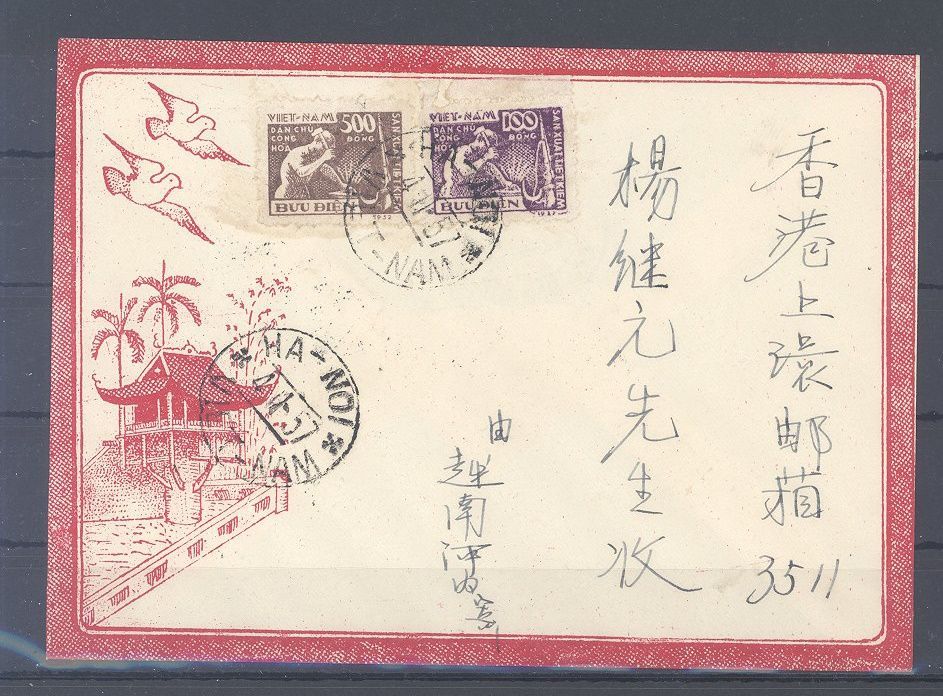 VIET-NAM
DÂN CHỦ
CỘNG
HÒA
500
ĐỒNG
SẢN XUẤT TIẾT KIỆM
BƯU ĐIỆN
1952
VIET-NAM
DÂN CHỦ
CỘNG
HÒA
100
ĐỒNG
SẢN XUẤT TIẾT KIỆM
BƯU ĐIỆN
HA-NOI
57
VIET-NAM
HA-NOI
57
VIET-NAM
香港上環邮箱3511
楊继元先生收
由
越南河內寄